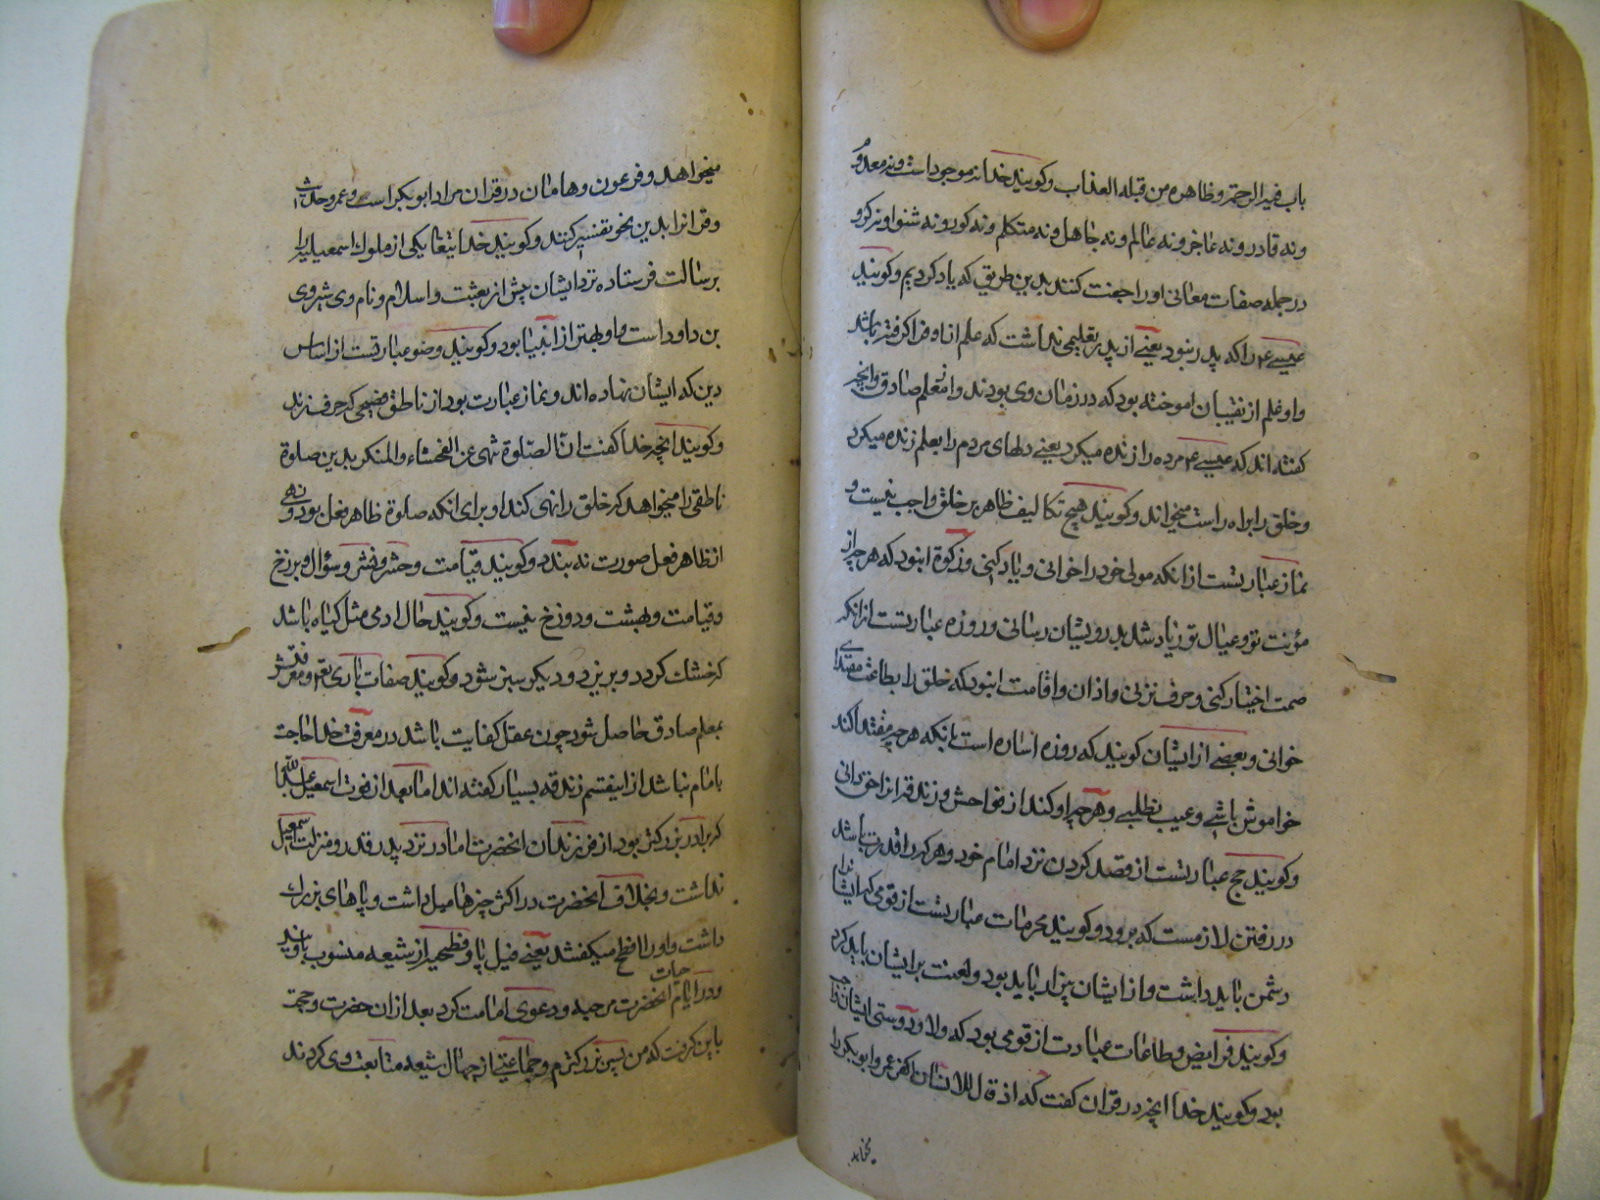 باب فیه الرحمة و ظاهره من قبله العذاب و کویند خدا نه موجود است و نه معدوم
و نه قادر و نه عاجز و نه عالم و نه جاهل و نه متکلم و نه کور و نه شنوا و نه کر و
در جمله صفات معانی او را جنت کنند بدین طریق که یاد کردیم و کویند
عیسی ع م را که پدر نبود یعنی از پدر تعلیمی نداشت که علم از او فرا کرفته باشد
و او علم از نقیبان اموخته بود که در زمان وی بودند و از معلم صادق و انچه
کفته اند که عیسی ع م مرده را زنده میکرد یعنی دلهای مردم را بعلم زنده میکرد
و خلق را براه راست میخواند و کویند هیچ تکالیف ظاهر بر خلق واجب نیست و
نماز عبارتست از انکه مولی خود را خوانی و یاد کنی و زکوة انبود که هر چه از
مؤنت تو و عیال تو زیاد شد بدرویشان رسانی و روزه عبارتست از انکه
صمت اختیار کنی و حرف نزنی و اذان و اقامت انبود که خلق را بطاعت مقتدای
خوانی و بعضی از ایشان کویند که روزه اساره است بانکه هر چه مقتدا کند
خواموش باشی و عیب نطلبی و هر چه او کند از فواحش و زند قه انرا حق دانی
و کویند حج عبارتست از قصد کردن نزد امام خود و هر که را قدرت باشد
در رفتن لازمست که برود و کویند محرمات عبارتست از قومی که ایشانرا
دشمن باید داشت و از ایشان بیزار باید بود و لعنت بر ایشان باید کرد
و کویند فرایض و طاعات عبادت از قومی بود که ولا و دوستی ایشان واجب
بود و کویند خدا انچه در قران کفت که اذ قال للانسان اکفر عمر و ابوبکر را
میخواهد
میخواهد و فرعون و هامان در قران مراد ابوبکر است و عمر و حدیث
و قرانرا بدین نحو تفسیر کنند و کویند خدا یتعا یکی از ملوک اسمعیلیه را
برسالت فرستاده نزد ایشان پیش از بعثت و اسلام و نام وی شیروی
بن داود است و او بهتر از انبیا بود و کویند وضو عبارتست از اساس
دین که ایشان نهاده اند و نماز عبارت بود از ناطق فصیحی که حرف زند
و کویند انچه خدا کفت ان الصلوة تنهی عن الفحشاء و المنکر بدین صلوة
ناطقی را میخواهد که خلق را نهی کند او برای انکه صلوة ظاهر فعل بود و نهی
از ظاهر فعل صورت نه بندد و کویند قیامت و حشر و نشر و سؤال و برزخ
و قیامت و بهشت و دوزخ نیست و کویند حال ادمی مثل کیاه باشد
که خشک کردد و بریزد و دیکر سبز شود و کویند صفات باری تع و معرفتش
بمعلم صادق حاصل شود چون عقل کفایت باشد در معرفت خدا حاجت
بامام نباشد از اینقسم زندقه بسیار کفته اند اما بعد از فوت اسمعیل عبد الله
که برادر بزرکتر بود از فرزندان انحضرت اما در نزد پدر قدر و منزلت اسمعیل
نداشت و بخلاف انحضرت در اکثر چیزها میل داشت و پاهای بزرک
داشت و او را افطح میکفتند یعنی فیل پا و فطحیه از شیعه منسوب باویند
و در ایام حیات انحضرت مرحید و دعوی امامت کرد بعد از ان حضرت و حجت
باین کرفت که من پسر بزرکترم و جماعتی از جهال شیعه متابعت وی کردند